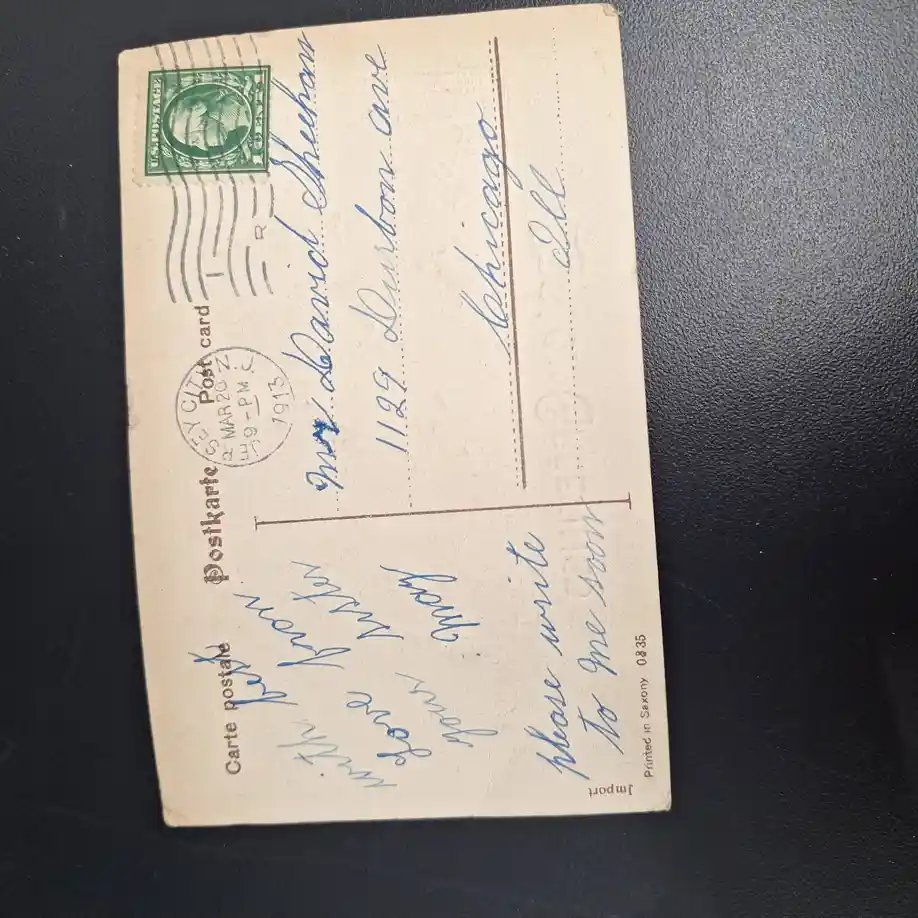 Carte postale Postkarte Post card
U.S. POSTAGE
1 CENT 1
SEY CITY
MAR 20
9 - PM
1913
R
with best
Love from
your sister
May
please write
to me soon
Mr David Sheehan
1129 ave
Chicago
Ill
Import
Printed in Saxony 0835